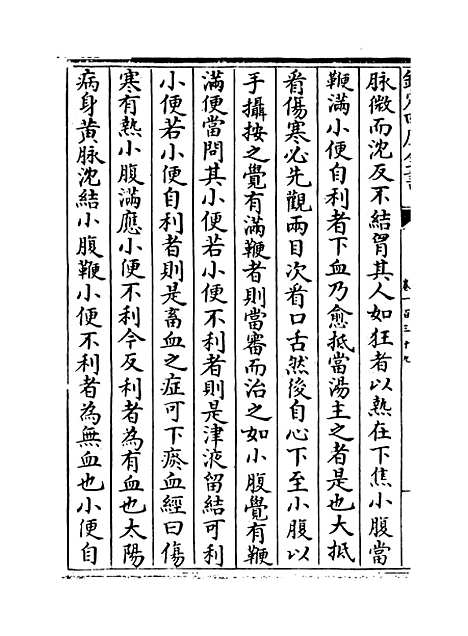 欽定四庫全書
卷一百三十九
脉微而沈反不結胷其人如狂者以熱在下焦小腹當
鞕滿小便自利者下血乃愈抵當湯主之者是也大抵
看傷寒必先觀兩目次看口舌然後自心下至小腹以
手攝按之覺有滿鞕者則當審而治之如小腹覺有鞕
滿便當問其小便若小便不利者則是津液留結可利
小便若小便自利者則是畜血之症可下瘀血經曰傷
寒有熱小腹滿應小便不利今反利者為有血也太陽
病身黄脉沈結小腹鞕小便不利者為無血也小便自